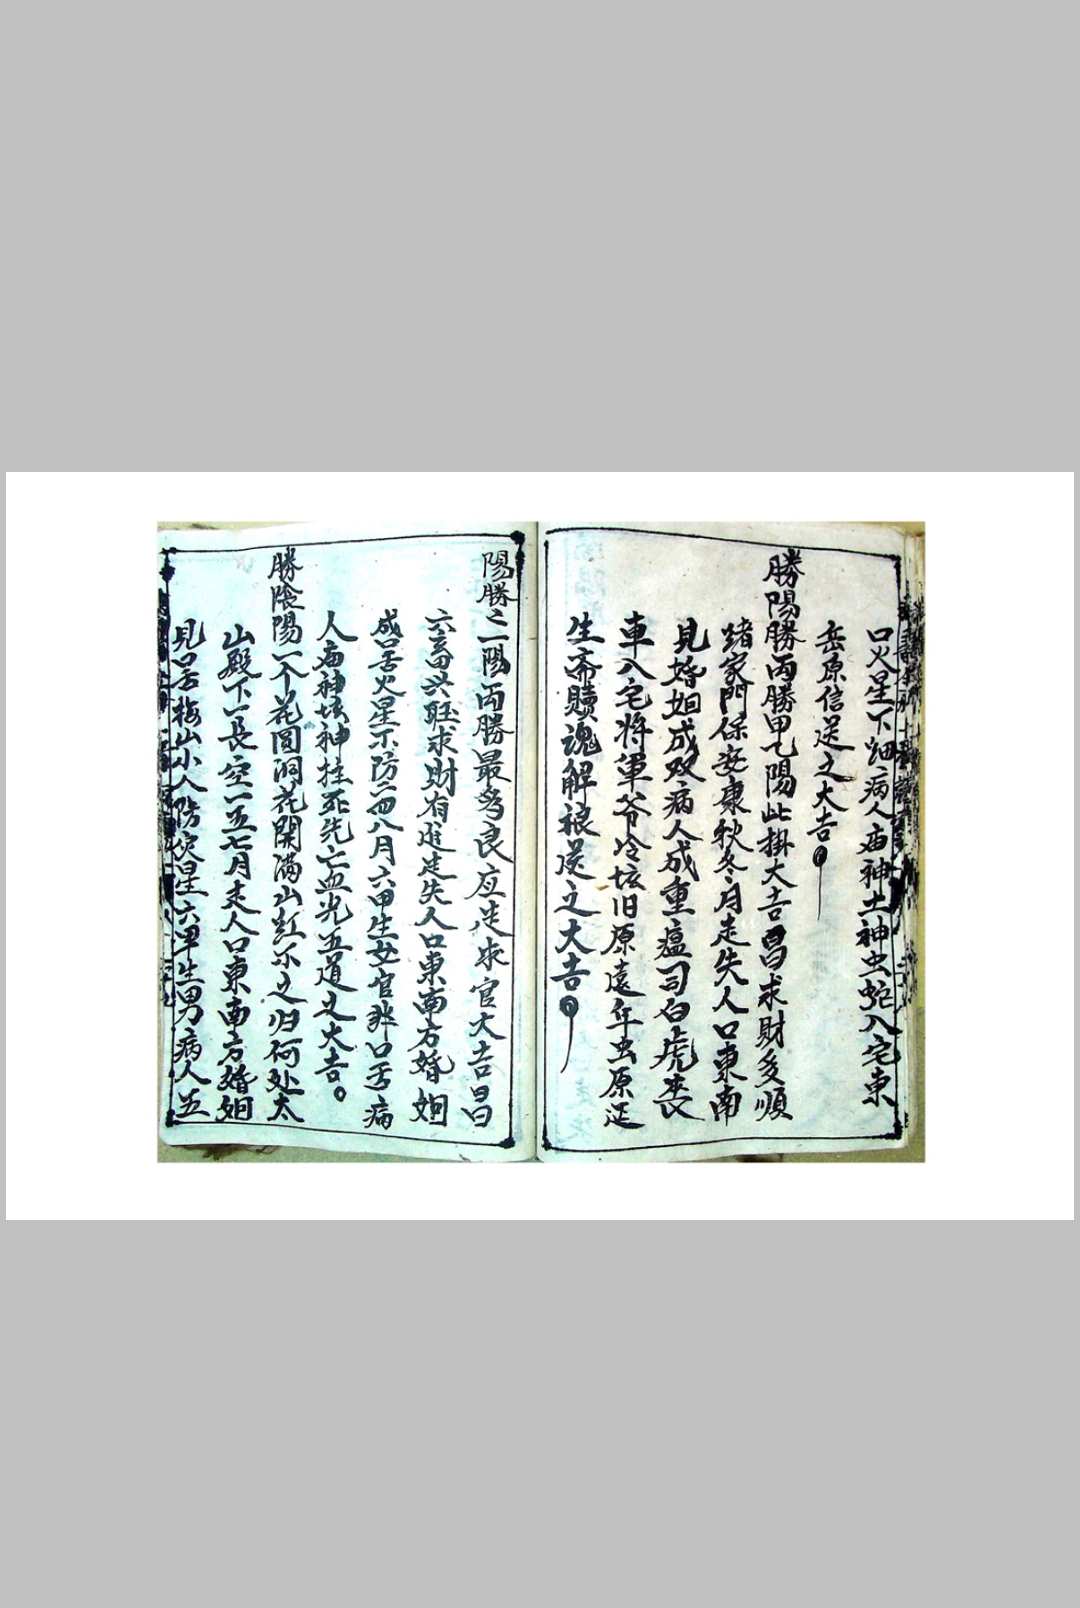 口火星下 病人庙神土神虫蛇入宅東
岳原信送之大吉
勝陽勝丙勝甲乙陽此掛大吉昌求財多順
緒家門保安康秋冬月走失人口東南
見婚姻成双病人成重瘟司白虎丧
車入宅将軍爷冷坛旧原遠年虫原廷
生斋贖魂解 送之大吉
陽勝之一陽丙勝最為良 求官大吉昌
六畜兴旺求財有進走失人口東南方婚姻
成口舌火星不防二四八月六甲生女官非口舌病
人庙神坛神挂死先亡血光五道之大吉。
勝陰陽一个花园洞花開满山红不之归何处太
山殿下一長空一五七月走人口東南方婚姻
見口舌梅山小人防 星六甲生男病人五